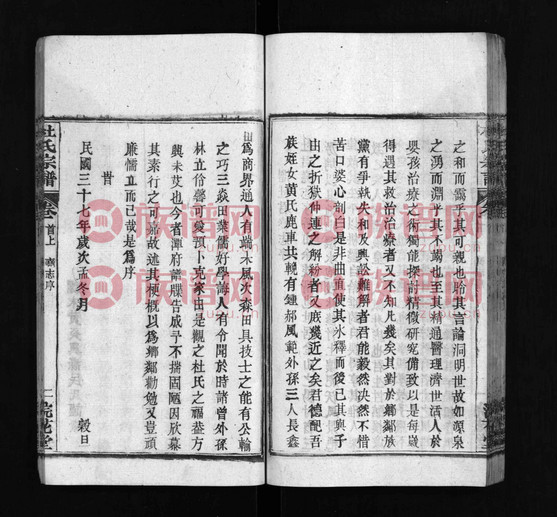 之和而靄乎其可親也聆其言論洞明世故如源泉
之湧而淵乎其不竭也至其精通醫理濟世活人於
嬰孩治療之術獨能探討精微研究備致以是每歲
得遇其救治治療者又不知凡幾矣其對於鄉鄰族
黨有爭執失和及興訟難解者君能毅然決然不惜
苦口婆心剖白是非曲直使其氷釋而後已其與子
由之折獄仲連之解紛者又庶幾近之矣君德配吾
族姪女黃氏鹿車共輓有鍾郝風範外孫三人長鑫
田為商界通人有端木風次森田具技士之能有公輸
之巧三焱田業儒好學誨人有令聞於時諸曾外孫
林立俗嚳可愛預卜克家由是觀之杜氏之福蓋方
興未艾也今者譚府譜牒告成予不揣固陋因欣慕
其素行之可述故述其梗概以為鄉鄰勸勉又豈頑
廉懦立而已哉是為序
旹
民國三十七年歲次孟冬月 穀日
杜氏宗譜 卷首上 序 二 浣花堂